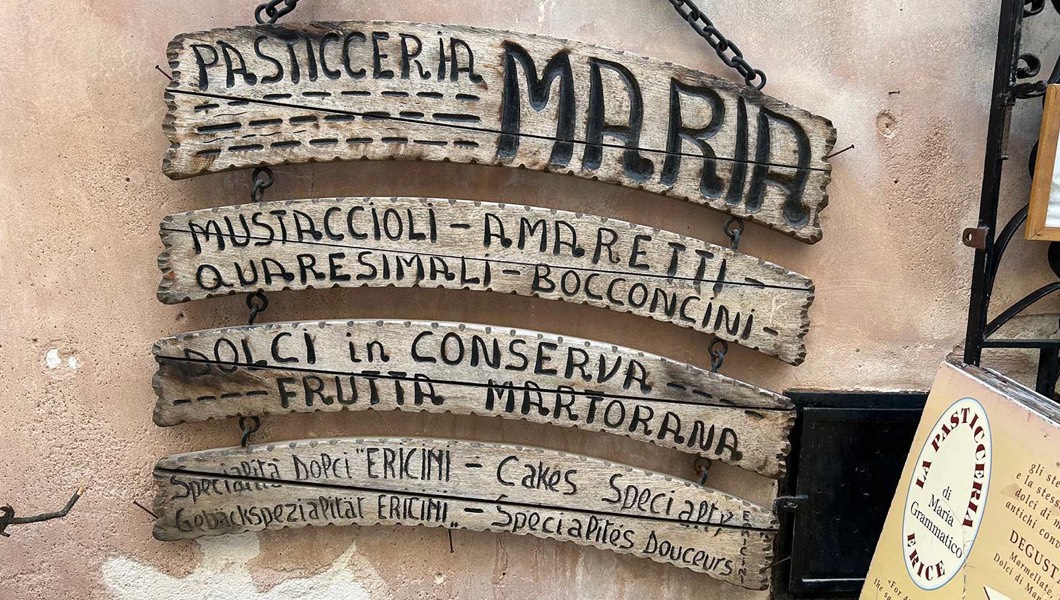 PASTICCERiA MARIA
MUSTACCiOLi - AMARETTI -
QUARESIMALi - BOCCONCiNi -
DOLCI in CONSERVA ---
---- FRUTTA MARTORANA
Specialità Dolci "ERICINI - Cakes Specialty
Gebäckspezialität ERICINI„ - Specialités Douceurs
LA PASTICCERIA
di
Maria
Grammatico
ERICE
gli
e la
dolci di
antichi
DEGUST
Marmellate
Dolci di